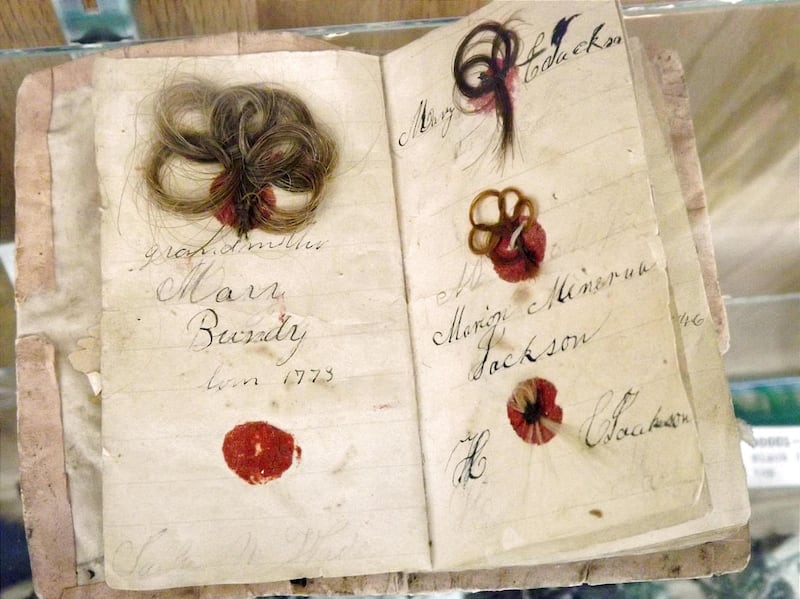 grandmother
Mary
Bundy
born 1773
Mary C Jackson
Marion Minerva
Jackson
H C Jackson
46